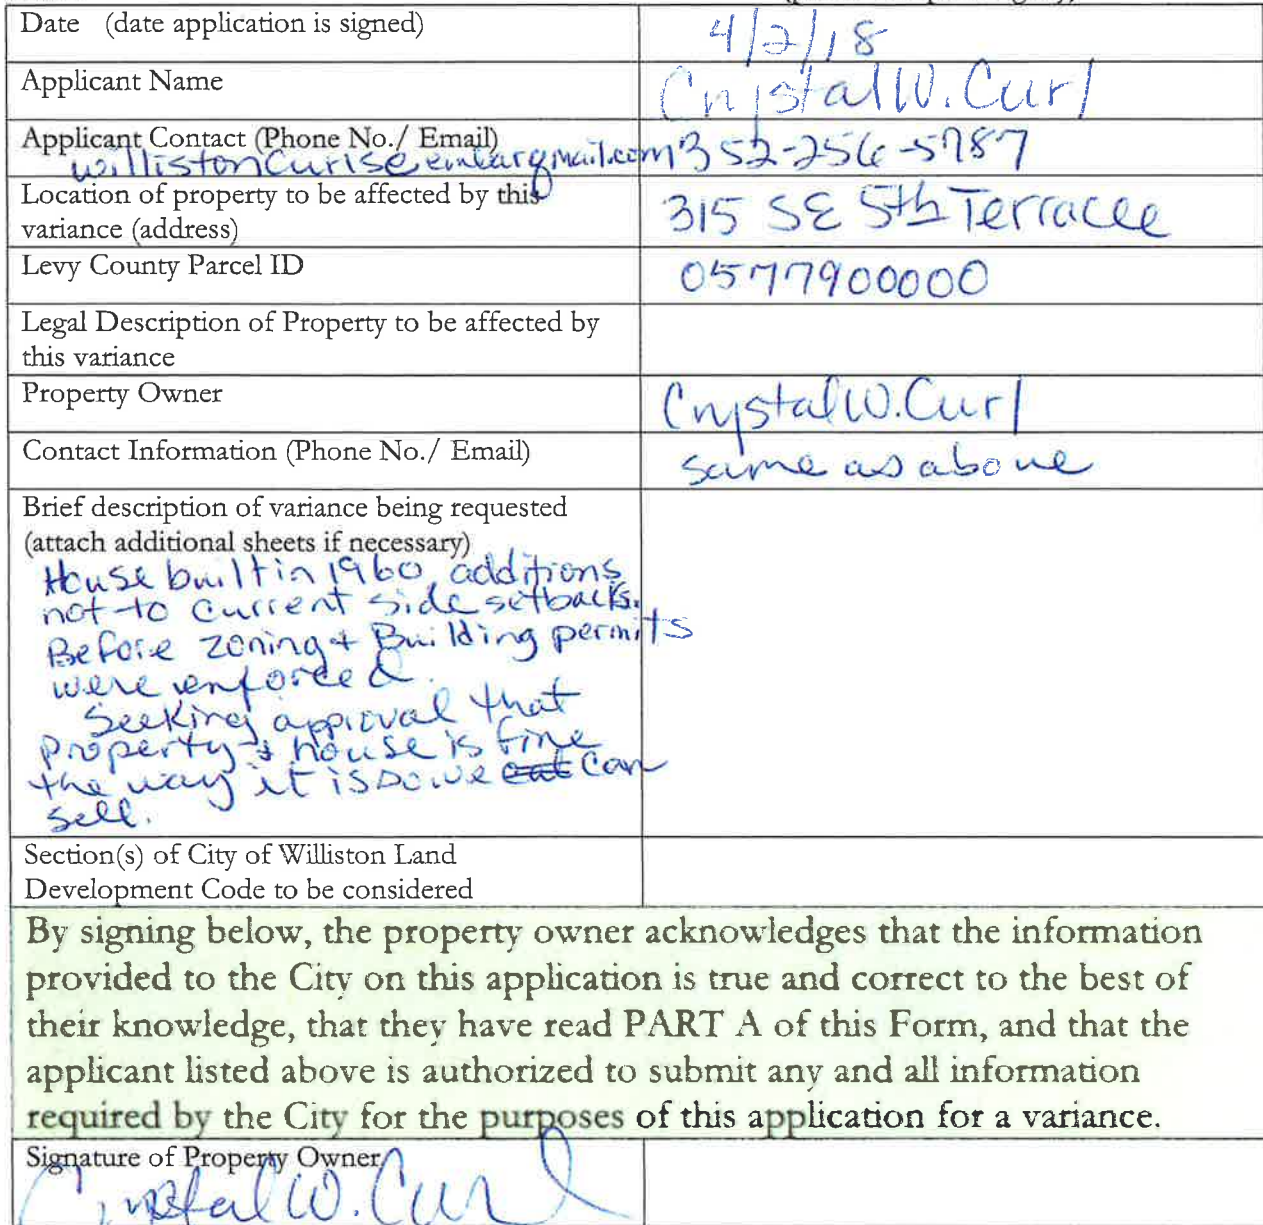 Date (date application is signed)
4/2/18
Applicant Name
Crystal W. Curl
Applicant Contact (Phone No./ Email)
352-256-5787
Location of property to be affected by this
variance (address)
315 SE 5th Terracee
Levy County Parcel ID
0577900000
Legal Description of Property to be affected by
this variance
Property Owner
Crystal W. Curl
Contact Information (Phone No./ Email)
same as above
Brief description of variance being requested
(attach additional sheets if necessary)
House built in 1960, additions
not to current side setbacks.
Before zoning + Building permits
were enforced.
Seeking approval that
property & house is fine
the way it is so we can
sell.
Section(s) of City of Williston Land
Development Code to be considered
By signing below, the property owner acknowledges that the information
provided to the City on this application is true and correct to the best of
their knowledge, that they have read PART A of this Form, and that the
applicant listed above is authorized to submit any and all information
required by the City for the purposes of this application for a variance.
Signature of Property Owner
Crystal W. Curl